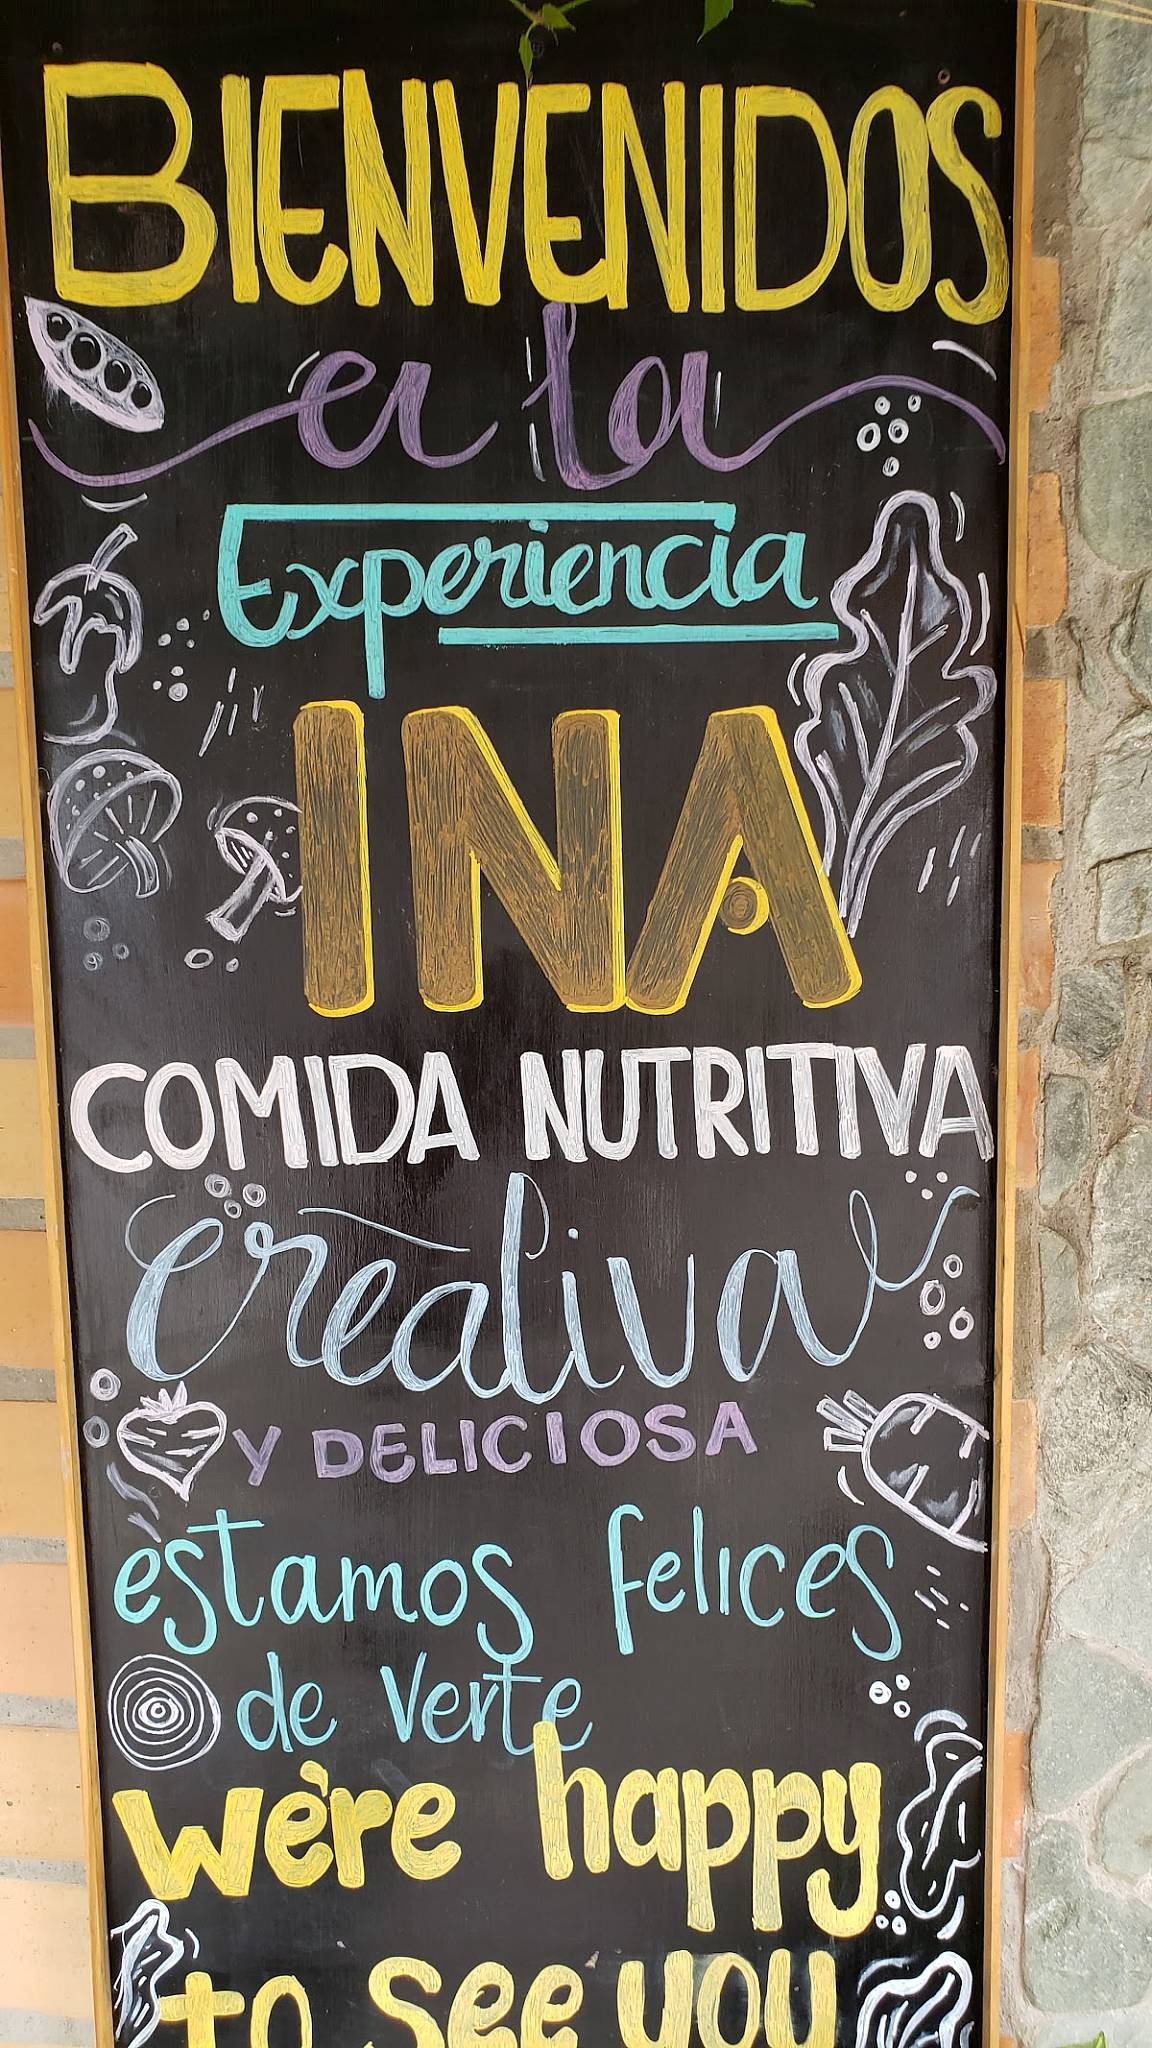 BIENVENIDOS
a la
Experiencia
INA
COMIDA NUTRITIVA
creativa
Y DELICIOSA
estamos felices
de verte
we're happy
to see you